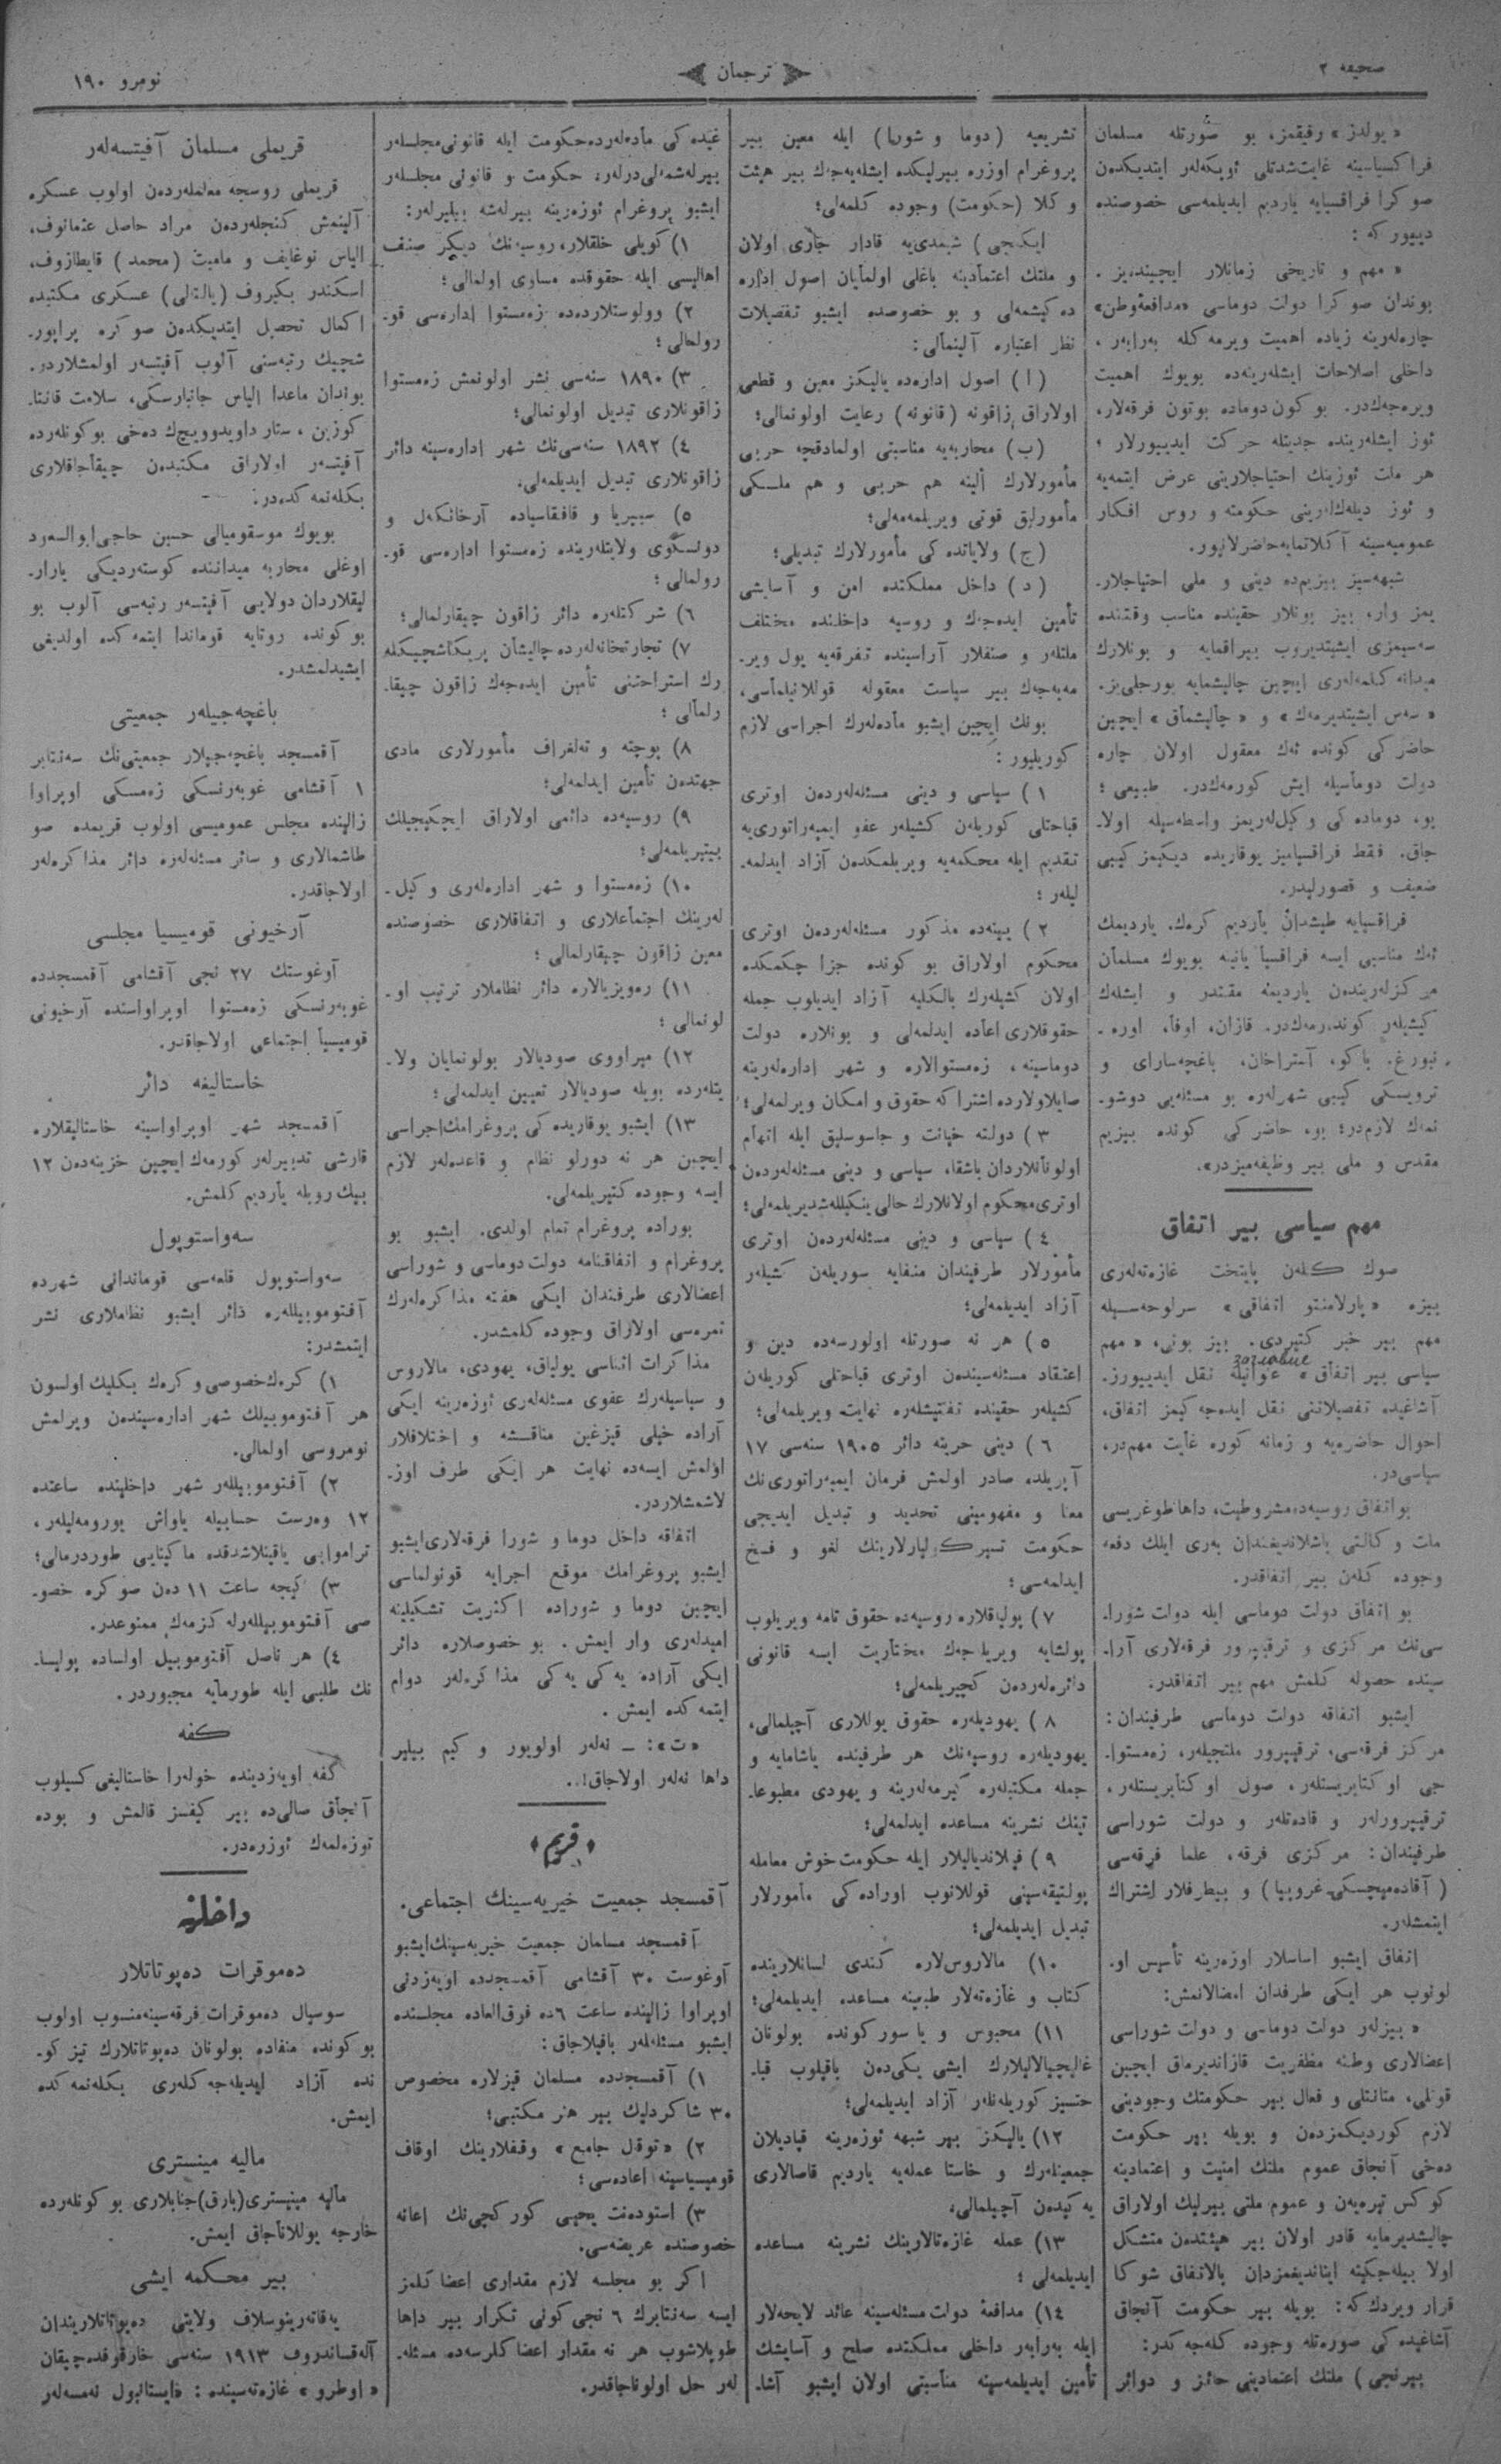 صحیفه ٢
ترجمان
نومرو ١٩٠
« یولدز » رفیقمز، بو صورتله مسلمان
فراكسیاسینه غایت شدتلی ئوپكه‌لر ایتدیكدن
صوكرا فراقسیایه یاردیم ایدیلمه‌سی خصوصنده
دییور كه :
« مهم و تاریخی زمانلار ایچینده‌یز .
بوندان صوكرا دولت دوماسی «مدافعهٔ وطن»
چاره‌لرینه زیاده اهمیت ویرمه كله به‌رابه‌ر ،
داخلی اصلاحات ایشله‌رینه‌ده بویوك اهمیت
ویره‌جه‌كدر. بو كون دوماده بوتون فرقه‌لار،
ئوز ایشله‌رینده جدیتله حركت ایدییورلار ؛
هر ملت ئوزینك احتیاجلارینی عرض ایتمه‌یه
و ئوز دیله‌كله‌رینی حكومته و روس افكار
عمومیه‌سینه آكلاتمایه حاضرلانیور.
شبهه‌سیز بیزیم‌ده دینی و ملی احتیاجلار-
یمز وار، بیز بونلار حقینده مناسب وقتنده
سه‌سیمزی ایشیتدیروب بیراقمایه و بونلارك
میدانه كلمه‌له‌ری ایچین چالیشمایه بورجلی‌یز.
« سه‌س ایشیتدیرمه‌ك » و « چالیشماق » ایچین
حاضركی كونده ئه‌ك معقول اولان چاره
دولت دوماسیله ایش كورمه‌كدر. طبیعی ؛
بو، دوماده‌كی وكیل‌له‌ریمز واسطه‌سیله اولا-
جاق. فقط فراقسیامیز یوقاریده دیكیمز كیبی
ضعیف و قصورلیدر.
فراقسیایه طیشدان یاردیم كره‌ك. یاردیمك
ئه‌ك مناسبی ایسه فراقسیا یانینه بویوك مسلمان
مركزله‌ریندن یاردیمه مقتدر و ایشله‌ك
كیشیله‌ر كونده‌رمه‌كدر. قازان، اوفا، اوره-
نبورغ. باكو، آستراخان، باغچه‌سارای و
ترویسكی كیبی شهرله‌ره بو مسئله‌یی دوشو-
نمه‌ك لازم‌در؛ بو، حاضركی كونده بیزیم
مقدس و ملی بیر وظیفه‌میزدر».
مهم سیاسی بیر اتفاق
صوك كله‌ن پایتخت غازه‌ته‌له‌ری
بیزه « پارلامنتو اتفاقی » سرلوحه‌سیله
مهم بیر خبر كتیردی. بیز بونی، « مهم
заглавие
سیاسی بیر اتفاق » عنوانیله نقل ایدییورز.
آشاغیده تفصیلاتنی نقل ایده‌جه‌كیمز اتفاق،
احوال حاضره‌یه و زمانه كوره غایت مهم‌در،
سیاسی‌در.
بو اتفاق روسیه‌ده مشروطیت، داها طوغریسی
ملت وكالتی باشلاندیغندان به‌ری ایلك دفعه
وجوده كله‌ن بیر اتفاقدر.
بو اتفاق دولت دوماسی ایله دولت شورا-
سی‌نك مركزی و ترقیپرور فرقه‌لاری آرا-
سینده حصوله كلمش مهم بیر اتفاقدر.
ایشبو اتفاقه دولت دوماسی طرفیندان :
مركز فرقه‌سی، ترقیپرور ملتجیله‌ر، زه‌مستوا-
جی اوكتابریستله‌ر، صول اوكتابریستله‌ر،
ترقیپرورله‌ر و قاده‌تله‌ر و دولت شوراسی
طرفیندان : مركزی فرقه، علما فرقه‌سی
( آقاده‌میچسكی غروپپا ) و بیطرفلار اشتراك
ایتمشله‌ر.
اتفاق ایشبو اساسلار اوزه‌رینه تأسیس او-
لونوب هر ایكی طرفدان امضالانمش :
« بیزله‌ر دولت دوماسی و دولت شوراسی
اعضالاری وطنه مظفریت قازاندیرماق ایچین
قوتلی، متانتلی و فعال بیر حكومتك وجودینی
لازم كوردیكمزدن و بویله بیر حكومت
ده‌خی آنجاق عموم ملتك امنیت و اعتمادینه
كوكس تیره‌یه‌ن و عموم ملتی بیرلیك اولاراق
چالیشدیرمایه قادر اولان بیر هیئتدن متشكل
اولا بیله‌جكینه اینانديغمزدان بالاتفاق شوكا
قرار ویردك كه : بویله بیر حكومت آنجاق
آشاغیده‌كی صورتله وجوده كله‌جه كدر :
بیرنجی ) ملتك اعتمادینی حائز و دوائر
تشریعیه ( دوما و شورا ) ایله معین بیر
پروغرام اوزره بیرلیكده ایشله‌یه‌جه‌ك بیر هیئت
وكلا ( حكومت ) وجوده كلمه‌لی ؛
ایكنجی ) شیمدی‌یه قادار جاری اولان
و ملتك اعتمادینه باغلی اولمایان اصول اداره
ده‌كیشمه‌لی و بو خصوصده ایشبو تفصیلات
نظر اعتباره آلینمالی :
( ا ) اصول اداره‌ده یالیكز معین و قطعی
اولاراق زاقونه ( قانونه ) رعایت اولونمالی ؛
( ب ) محاربه‌یه مناسبتی اولمادقچه حربی
مأمورلارك الینه هم حربی و هم ملكی
مأمورلیق قوتی ویریلمه‌مه‌لی ؛
( ج ) ولایاتده‌كی مأمورلارك تبدیلی ؛
( د ) داخل مملكتده امن و آسایشی
تأمین ایده‌جه‌ك و روسیه داخلنده مختلف
ملتله‌ر و صنفلار آراسینده تفرقه‌یه یول ویر-
مه‌یه‌جه‌ك بیر سیاست معقوله قوللانیلماسی،
بونك ایچین ایشبو ماده‌له‌رك اجراسی لازم
كوریلیور :
١ ) سیاسی و دینی مسئله‌له‌ردن اوتری
قباحتلی كوریله‌ن كشیله‌ر عفو ایمپه‌راتوری‌یه
تقدیم ایله محكمه‌یه ویریلمكدن آزاد ایدلمه-
لیله‌ر ؛
٢ ) یینه‌ده مذكور مسئله‌له‌ردن اوتری
محكوم اولاراق بو كونده جزا چكمكده
اولان كشیله‌رك بالكلیه آزاد ایدیلوب جمله
حقوقلاری اعاده ایدلمه‌لی و بونلاره دولت
دوماسینه، زه‌مستوالاره و شهر اداره‌له‌رینه
صایلاولارده اشتراكه حقوق و امكان ویرلمه‌لی ؛
٣ ) دولته خیانت و جاسوسلیق ایله اتهام
اولونانلاردان باشقا، سیاسی و دینی مسئله‌له‌ردن
اوتری محكوم اولانلارك حالی یینكیلله‌شدیریلمه‌لی ؛
٤ ) سیاسی و دینی مسئله‌له‌ردن اوتری
مأمورلار طرفیندان منفایه سوریله‌ن كشیله‌ر
آزاد ایدیلمه‌لی ؛
٥ ) هر نه صورتله اولورسه‌ده دین و
اعتقاد مسئله‌سیندن اوتری قباحتلی كوریله‌ن
كشیله‌ر حقینده تفتیشله‌ره نهایت ویریلمه‌لی ؛
٦ ) دینی حریته دائر ١٩٠٥ سنه‌سی ١٧
آپریلده صادر اولمش فرمان ایمپه‌راتوری‌نك
معنا و مفهومینی تحدید و تبدیل ایدیجی
حكومت تسیركولیارلارینك لغو و فسخ
ایدلمه‌سی ؛
٧ ) پولیاقلاره روسیه‌ده حقوق تامه ویریلوب
پولشایه ویریلجه‌ك مختاریت ایسه قانونی
دائره‌له‌ردن كچیریلمه‌لی ؛
٨ ) یهودیله‌ره حقوق یوللاری آچیلمالی،
یهودیله‌ره روسیه‌نك هر طرفینده یاشامایه و
جمله مكتبله‌ره كیرمه‌له‌رینه و یهودی مطبوعا-
تینك نشرینه مساعده ایدلمه‌لی ؛
٩ ) فینلاندیالیلار ایله حكومت خوش معامله
پولتیقه‌سینی قوللانوب اوراده‌كی مأمورلار
تبدیل ایدیلمه‌لی ؛
١٠ ) مالاروس‌لاره كندی لسانلارینده
كتاب و غازه‌ته‌لار طبعینه مساعده ایدیلمه‌لی ؛
١١ ) محبوس و یا سوركونده بولونان
غالیچیالالیلارك ایشی یكی‌دن باقیلوب قبا-
حتسیز كوریله‌نله‌ر آزاد ایدیلمه‌لی ؛
١٢ ) یالیكز بیر شبهه ئوزه‌رینه قپادیلان
جمعیتله‌رك و خاستا عمله‌یه یاردیم قاصالاری
یه‌كیدن آچیلمالی،
١٣ ) عمله غازه‌تالارینك نشرینه مساعده
ایدیلمه‌لی ؛
١٤ ) مدافعهٔ دولت مسئله‌سینه عائد لایحه‌لار
ایله به‌رابه‌ر داخلی مملكتده صلح و آسایشك
تأمین ایدیلمه‌سینه مناسبتی اولان ایشبو آشا-
غیده‌كی ماده‌له‌رده حكومت ایله قانونی مجلسله‌ر
بیرله‌شمه‌لی‌درله‌ر، حكومت و قانونی مجلسله‌ر
ایشبو پروغرام ئوزه‌رینه بیرله‌شه بیلیرله‌ر :
١) كویلی خلقلار، روسیه‌نك دیكر صنف
اهالیسی ایله حقوقده مساوی اولمالی ؛
٢) وولوستلارده‌ده زه‌مستوا اداره‌سی قو-
رولمالی ؛
٣) ١٨٩٠ سنه‌سی نشر اولونمش زه‌مستوا
زاقونلاری تبدیل اولونمالی ؛
٤) ١٨٩٢ سنه‌سی‌نك شهر اداره‌سینه دائر
زاقونلاری تبدیل ایدیلمه‌لی،
٥) سیبیریا و قافقاسیاده آرخانكه‌ل و
دونسكوی ولایتله‌رینده زه‌مستوا اداره‌سی قو-
رولمالی ؛
٦) شركتله‌ره دائر زاقون چیقارلمالی ؛
٧) تجارتخانه‌له‌رده چالیشان پریكاشچیكله-
رك استراحتنی تأمین ایده‌جه‌ك زاقون چیقا-
رلمالی ؛
٨) پوچته و ته‌لغراف مأمورلاری مادی
جهتدن تأمین ایدلمه‌لی ؛
٩) روسیه‌ده دائمی اولاراق ایچكیجیلك
بیتیریلمه‌لی ؛
١٠) زه‌مستوا و شهر اداره‌له‌ری وكیل-
له‌رینك اجتماعلاری و اتفاقلاری خصوصنده
معین زاقون چیقارلمالی ؛
١١) ره‌ویزیالاره دائر نظاملار ترتیب او-
لونمالی ؛
١٢) میراووی صودیالار بولونمایان ولا-
یتله‌رده بویله صودیالار تعیین ایدلمه‌لی ؛
١٣) ایشبو یوقاریده‌كی پروغرامك اجراسی
ایچین هر نه دورلو نظام و قاعده‌له‌ر لازم
ایسه وجوده كتیریلمه‌لی.
بوراده پروغرام تمام اولدی. ایشبو بو
پروغرام و اتفاقنامه دولت دوماسی و شوراسی
اعضالاری طرفندان ایكی هفته مذاكره‌له‌رك
ثمره‌سی اولاراق وجوده كلمشدر.
مذاكرات اثناسی پولیاق، یهودی، مالاروس
و سیاسیله‌رك عفوی مسئله‌له‌ری ئوزه‌رینه ایكی
آراده خیلی قیزغین مناقشه و اختلافلار
اولمش ایسه‌ده نهایت هر ایكی طرف اوز-
لاشمشلاردر.
اتفاقه داخل دوما و شورا فرقه‌لاری ایشبو
ایشبو پروغرامك موقع اجرایه قونولماسی
ایچین دوما و شوراده اكثریت تشكیلینه
امیدله‌ری وار ایمش. بو خصوصلاره دائر
ایكی آراده یه‌كی یه‌كی مذاكره‌له‌ر دوام
ایتمه‌كده ایمش .
«ت»: ــ نه‌له‌ر اولویور و كیم بیلیر
داها نه‌له‌ر اولاجاق!..
﴿ قریم ﴾
آقمسجد جمعیت خیریه‌سینك اجتماعی.
آقمسجد مسلمان جمعیت خیریه‌سینك ایشبو
آوغوست ٣٠ آقشامی آقمسجدده اویه‌زدنی
اوپراوا زالینده ساعت ٦ده فوق‌العاده مجلسنده
ایشبو مسئله‌له‌ر باقیلاجاق :
١) آقمسجدده مسلمان قیزلاره مخصوص
٣٠ شاكردلیك بیر هنر مكتبی ؛
٢) «توقل جامع» وقفلارینك اوقاف
قومیسیاسینه اعاده‌سی ؛
٣) استوده‌نت یحیی كوركچی‌نك اعانه
خصوصنده عریضه‌سی.
اكر بو مجلسه لازم مقداری اعضا كلمز
ایسه سه‌نتابرك ٦ نجی كونی تكرار بیر داها
طوپلاشوب هر نه مقدار اعضا كلرسه‌ده مسئله-
له‌ر حل اولوناجاقدر.
قریملی مسلمان آفیتسه‌له‌ر
قریملی روسجه معلمله‌ردن اولوب عسكره
آلینمش كنجله‌ردن مراد حاصل عثمانوف،
الیاس نوغایف و مامبت (محمد) قایطازوف،
اسكندر بكیروف (یالتالی) عسكری مكتبده
اكمال تحصیل ایتدیكدن صوكره پراپور-
شچیك رتبه‌سنی آلوب آفیتسه‌ر اولمشلاردر.
بوندان ماعدا الیاس جانبارسكی، سلامت قانتا-
كوزین ، ستار داویدوویچ‌ك ده‌خی بو كونله‌رده
آفیتسه‌ر اولاراق مكتبدن چیقاجاقلاری
بكله‌نمه كده‌در.
بویوك موسقومیالی حسین حاجی ابوالسعود
اوغلی محاربه میداننده كوسته‌ردیكی یارار-
لیقلاردان دولایی آفیتسه‌ر رتبه‌سی آلوب بو
بو كونده روتایه قوماندا ایتمه‌كده اولدیغی
ایشیدلمشدر.
باغچه‌جیله‌ر جمعیتی
آقمسجد باغچه‌جیلار جمعیتی‌نك سه‌نتابر
١ آقشامی غوبه‌رنسكی زه‌مسكی اوپراوا
زالینده مجلس عمومیسی اولوب قریمده صو
طاشمالاری و سائر مسئله‌له‌ره دائر مذاكره‌له‌ر
اولاجاقدر.
آرخیونی قومیسیا مجلسی
آوغوستك ٢٧ نجی آقشامی آقمسجدده
غوبه‌رنسكی زه‌مستوا اوپراواسنده آرخیونی
قومیسیا اجتماعی اولاجاقدر.
خاستالیغه دائر
آقمسجد شهر اوپراواسینه خاستالیقلاره
قارشی تدبیرله‌ر كورمه‌ك ایچین خزینه‌دن ١٢
بیك روبله یاردیم كلمش.
سه‌واستوپول
سه‌واستوپول قلعه‌سی قوماندانی شهرده
آفتوموبیلله‌ره دائر ایشبو نظاملاری نشر
ایتمشدر :
١) كره‌ك خصوصی و كره‌ك بكلیك اولسون
هر آفتوموبیلك شهر اداره‌سیندن ویرلمش
نومروسی اولمالی.
٢) آفتوموبیلله‌ر شهر داخلینده ساعتده
١٢ وه‌رست حسابیله یاواش یورومه‌لیله‌ر،
تراموایی یاقینلاشدقده ماكینایی طوردرمالی ؛
٣) كیجه ساعت ١١ دن صوكره خصو-
صی آفتوموبیلله‌رله كزمه‌ك ممنوعدر.
٤) هر ناصل آفتوموبیل اولساده پولیسا-
نك طلبی ایله طورمایه مجبوردر.
كفه
كفه اویه‌زدینده خوله‌را خاستالیغی كسیلوب
آنجاق صالی‌ده بیر كیفسز قالمش و بوده
توزه‌لمه‌ك ئوزره‌در.
داخلیه
ده‌موقرات ده‌پوتاتلار
سوسیال ده‌موقرات فرقه‌سینه منسوب اولوب
بو كونده منفاده بولونان ده‌پوتاتلارك تیز كو-
نده آزاد ایدیله‌جه كله‌ری بكله‌نمه كده
ایمش.
مالیه مینستری
مالیه مینیستری (بارق) جنابلاری بو كونله‌رده
خارجه یوللاناجاق ایمش.
بیر محكمه ایشی
یه‌قاته‌رینوسلاف ولایتی ده‌پوتاتلاریندان
آله‌قساندروف ١٩١٣ سنه‌سی خارقوفده چیقان
« اوطرو » غازه‌ته‌سینده : «ایستانبول نه‌مسه‌لر